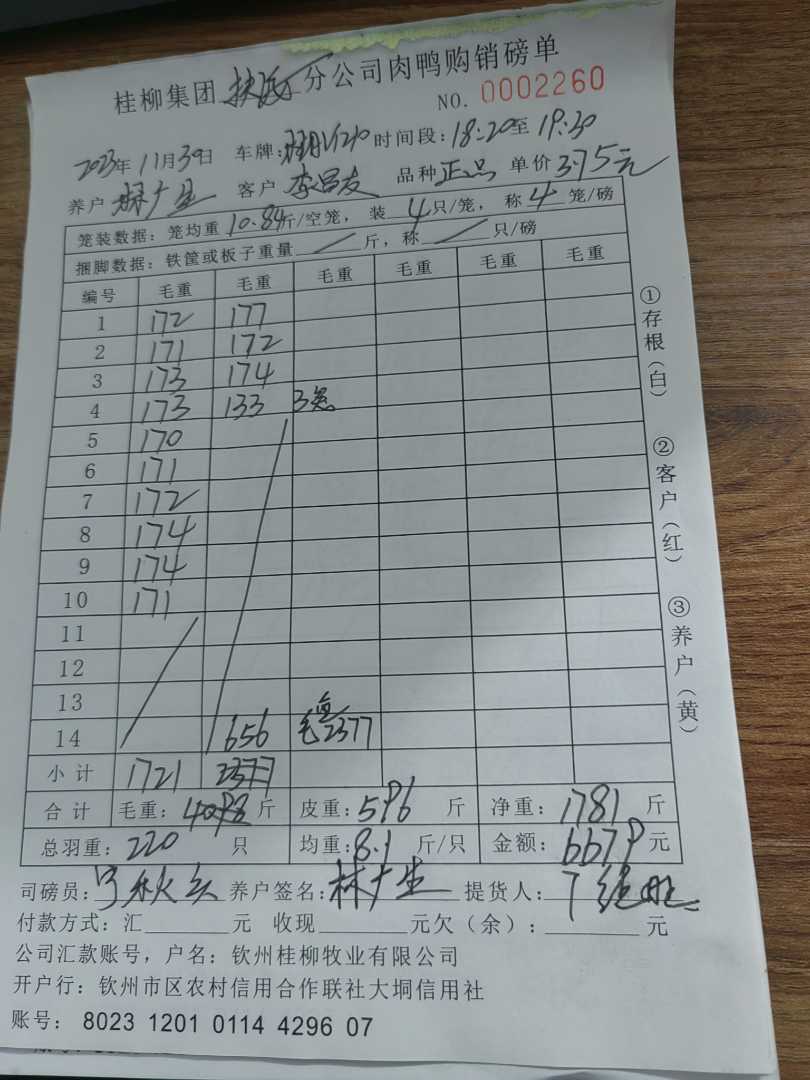 桂柳集团 分公司肉鸭购销磅单
NO. 0002260
2023年11月30日 车牌: 时间段:18:20至19:30
养户 林广生 客户 李昌友 品种 正品 单价 3.75元
笼装数据：笼均重 10.84斤/空笼，装 4只/笼，称 4笼/磅
捆脚数据：铁筐或板子重量 / 斤，称 / 只/磅
编号 毛重 毛重 毛重 毛重 毛重 毛重
1 172 177
2 171 172
3 173 174
4 173 133 3笼
5 170
6 171
7 172
8 174
9 174
10 171
11
12
13
14 656 毛重2377
小计 1721 2377
合计 毛重： 斤 皮重：596 斤 净重：1781 斤
总羽重：220 只 均重：8.1 斤/只 金额：6679 元
司磅员： 养户签名：林广生 提货人：
付款方式：汇 元 收现 元欠（余）： 元
公司汇款账号，户名：钦州桂柳牧业有限公司
开户行：钦州市区农村信用合作联社大垌信用社
账号： 8023 1201 0114 4296 07
①存根（白）
②客户（红）
③养户（黄）